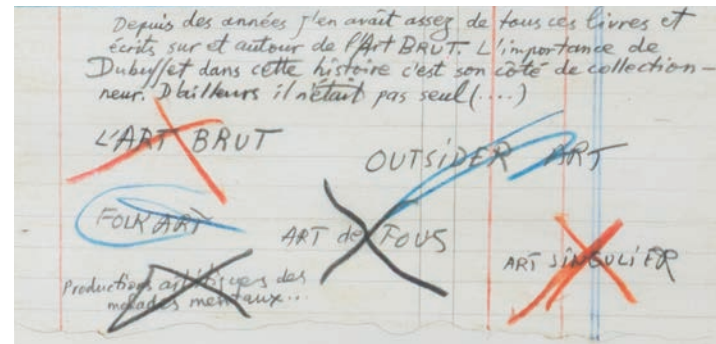 Depuis des années j'en avait assez de tous ces livres et
écrits sur et autour de l'Art BRUT. L'importance de
Dubuffet dans cette histoire c'est son côté de collection-
neur. D'ailleurs il n'était pas seul (....)
L'ART BRUT
OUTSIDER ART
FOLK ART
ART de FOUS
ART SINGULIER
Productions artistiques des
malades mentaux...